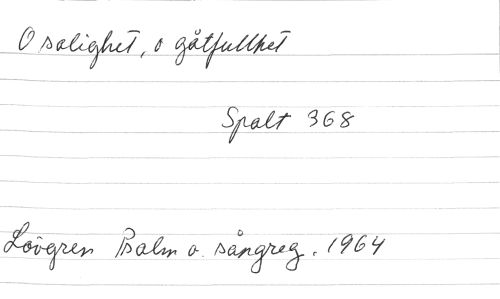 O salighet, o gåtfullhet
Spalt 368
Lövgren Psalm o. sångreg. 1964